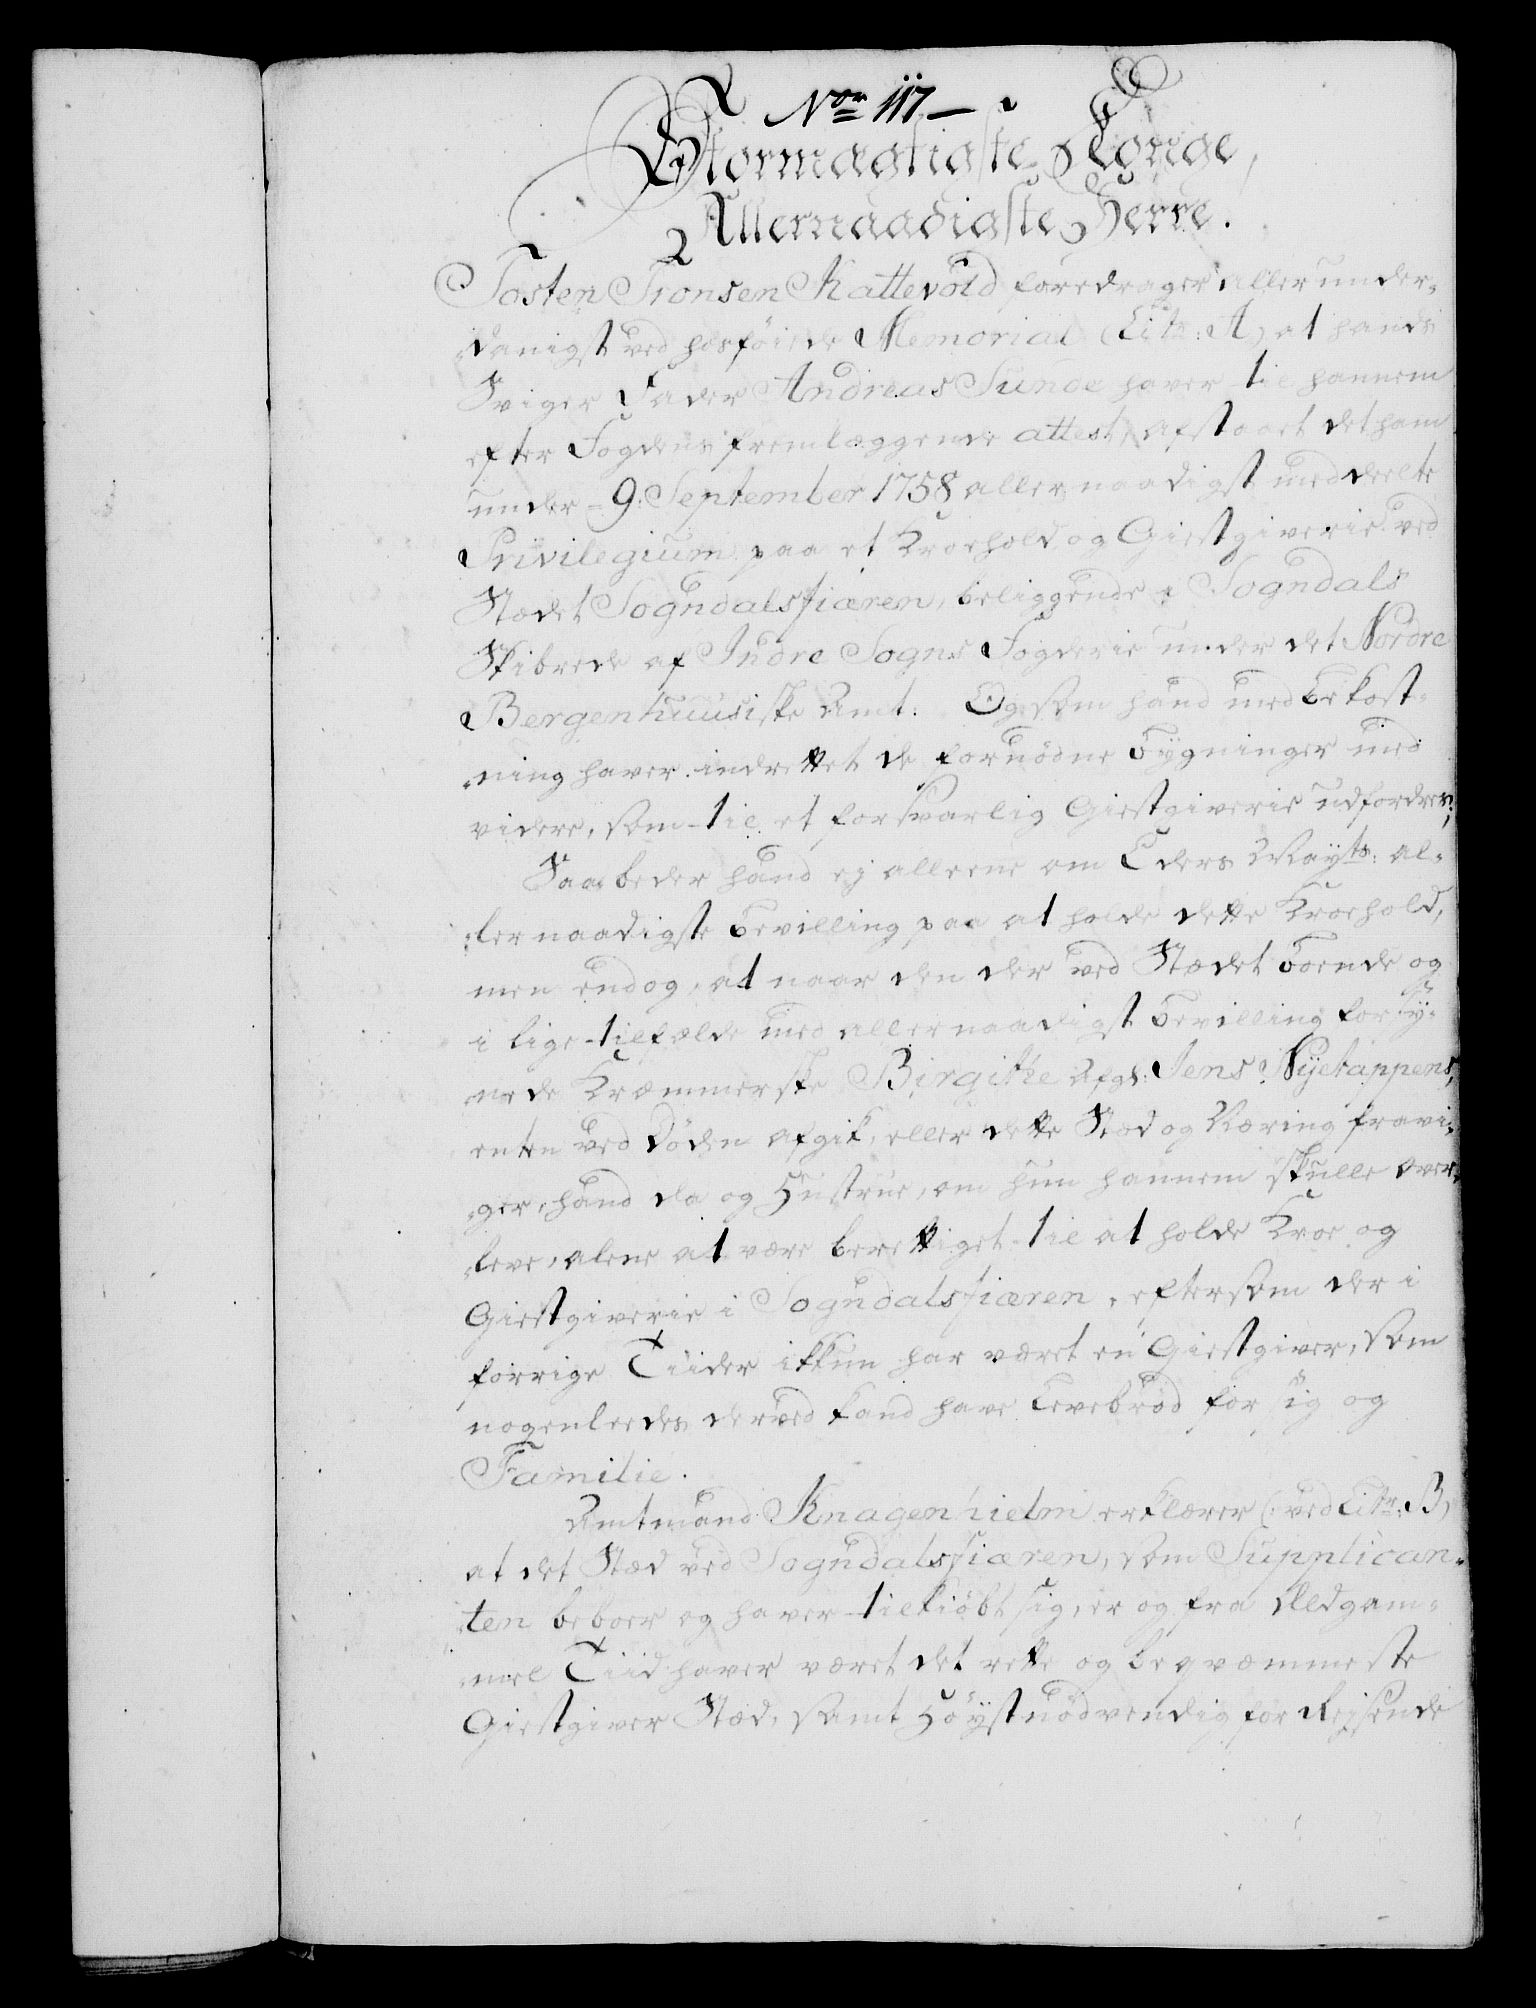 Non 117
Stormægtigste Konge,
Allernaadigste Herre.
Tosten Tronsen Kattevold foredrager allerunder-
danigst ved hosføiede Memorial (Litr: A) at hands
Sviger Fader Andreas Sunde haver til hannem
efter Fogdens fremlæggende attest, afstaaet det ham
under 9 September 1758 allernaadigst meddeelte
Privilegium paa et Kroehold og Giestgiverie ved
Stædet Sogndalsfiæren, beliggende i Sogndals
Skibrede af Indre Sogns Fogderie under det Nordre
Bergenhuusiske Amt. Og som hand med Bekost-
ning haver indrettet de fornødne Bygninger med
videre, som til et forsvarlig Giestgiverie udfordres;
Saa beder hand ej alleene om Eders Mayts: al-
lernaadigste Bevilling paa at holde dette Kroehold,
men endog, at naar den der ved Stædet boende og
i lige tilfælde med allernaadigst Bevilling forsy-
nede Kræmmerske Birgithe Afg: Jens Nyetappens,
enten ved Døden afgik, eller dette Stæd og Næring fravi-
ger, hand da og Hustrue, om hun hannem skulle over-
leve, alene at være berettiget til at holde Kroe og
Giestgiverie i Sogndalsfiæren, eftersom der i
forrige Tiider ikkun har været en Giestgiver, som
nogenledes derved kand have Levebrød for sig og
Familie.
Amtmand Knagenhielm erklærer (: ved Litr: B,
at det Stæd ved Sogndalsfiæren, som Supplican-
ten beboer og haver tilkiøbt sig, er og fra Ældgam-
mel Tiid haver været det rette og beqvæmmeste
Giestgiver Stæd, samt Høystnødvendig for Rejsende